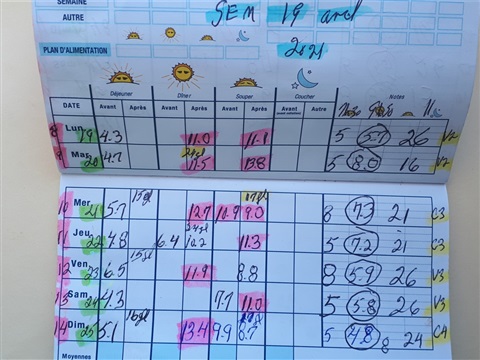 SEMAINE
AUTRE
SEM 19 avril
2021
PLAN D'ALIMENTATION
Déjeuner Dîner Souper Coucher Notes
DATE Avant Après Avant Après Avant Après Avant Autre
8 Lun. 19 4.3 11.0 11.1 5 5.7 26
9 Mar. 20 4.7 11.5 13.8 5 8.0 16
10 Mer. 21 5.7 15gl 12.7 11.9 9.0 8 7.3 21 C3
11 Jeu. 22 4.8 6.4 10.2 11.3 5 7.2 21 C3
12 Ven. 23 6.5 15gl 11.9 8.8 8 5.9 26 V3
13 Sam. 24 4.3 7.7 11.0 5 5.8 26 V3
14 Dim. 25 5.1 16gl 13.4 9.9 8.7 5 4.8 8 24 C4
Moyennes